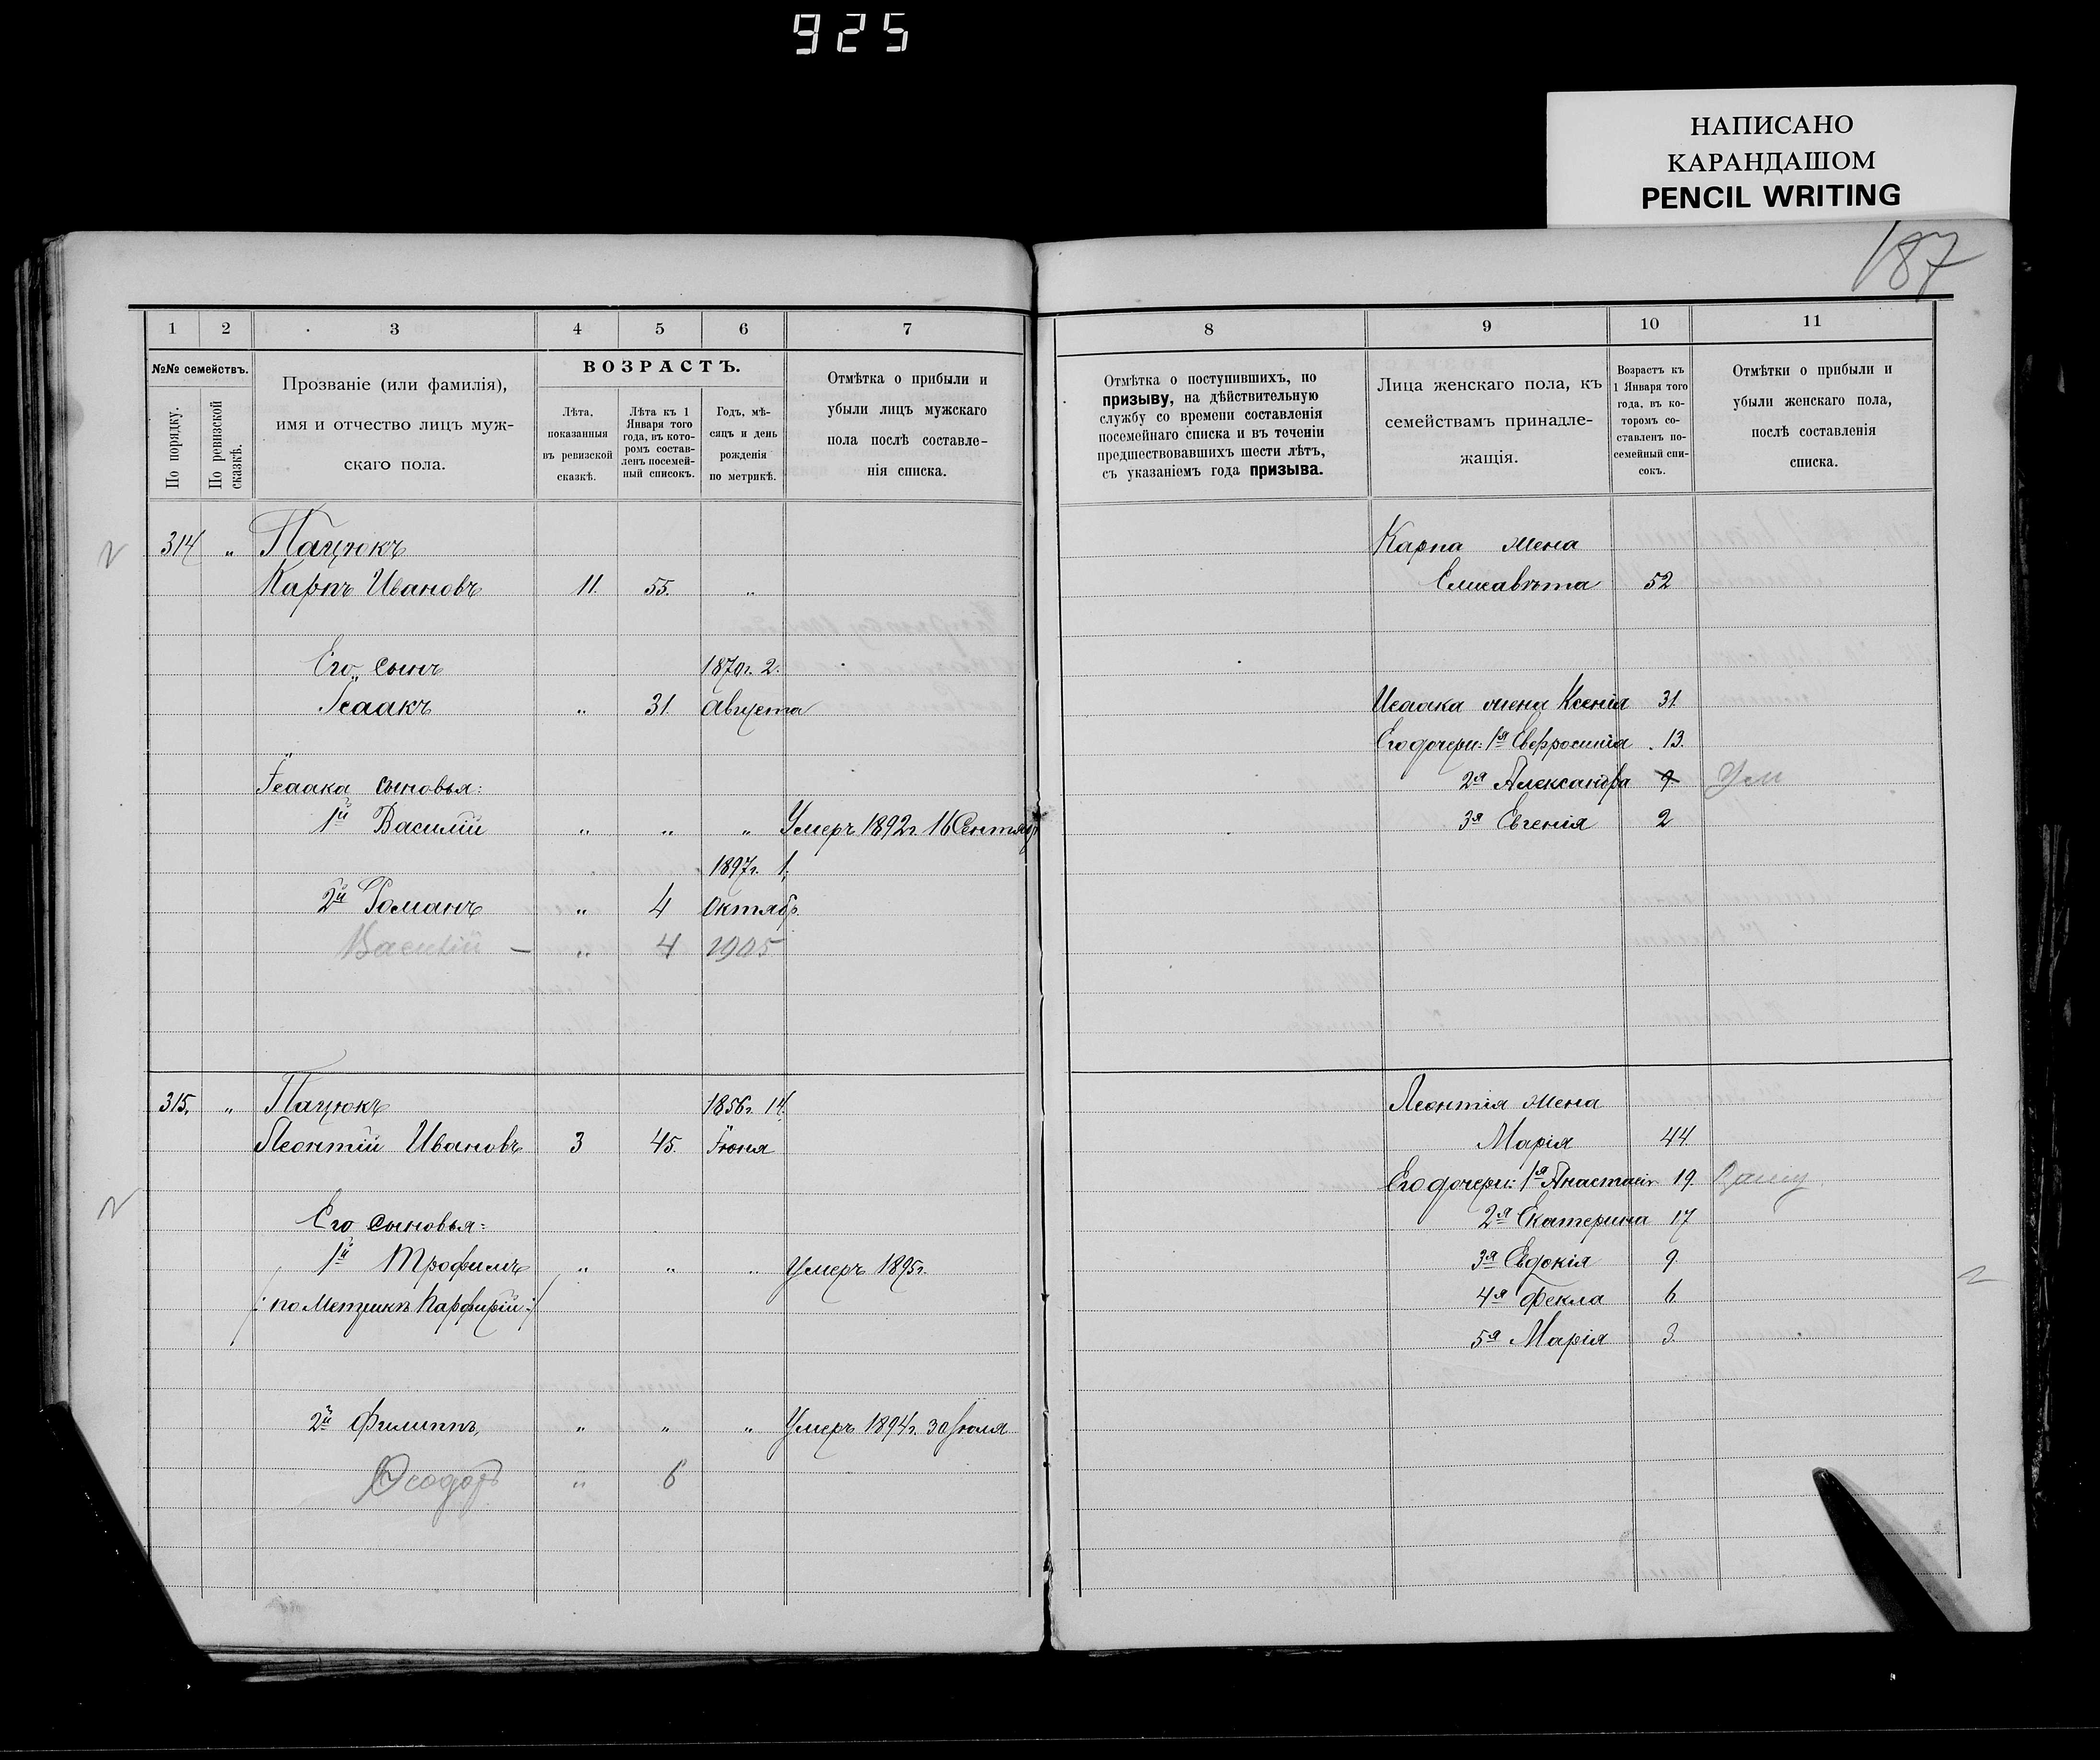 925
НАПИСАНО
КАРАНДАШОМ
PENCIL WRITING
187
1 2 3 4 5 6 7
№№ семействъ.
По порядку.
По ревизской сказкѣ.
Прозваніе (или фамилія),
имя и отчество лицъ муж-
скаго пола.
ВОЗРАСТЪ.
Лѣта,
показанныя
въ ревизской
сказкѣ.
Лѣта къ 1
Января того
года, въ кото-
ромъ состав-
ленъ посемей-
ный списокъ.
Годъ, мѣ-
сяцъ и день
рожденія
по метрикѣ.
Отмѣтка о прибыли и
убыли лицъ мужскаго
пола послѣ составле-
нія списка.
314 " Пацюкъ
Карпъ Ивановъ 11. 55. "
Его сынъ 1870г. 2.
Ісаакъ " 31. Августа
Ісаака сыновья:
1й Василій " " " Умеръ 1892г. 16 Сентябр
1897г. 1.
2й Романъ " 4 Октябр.
Василій — " 4 1905
315. " Пацюкъ 1856г. 14.
Леонтій Ивановъ 3 45. Іюня
Его сыновья:
1й Трофимъ " " " Умеръ 1895г.
/: по Метрикѣ Парфирій :/
2й Филиппъ, " " " Умеръ 1894г. 30 Іюля
Ѳеодоръ " 6
8 9 10 11
Отмѣтка о поступившихъ, по
призыву, на дѣйствительную
службу со времени составленія
посемейнаго списка и въ теченіи
предшествовавшихъ шести лѣтъ,
съ указаніемъ года призыва.
Лица женскаго пола, къ
семействамъ принадле-
жащія.
Возрастъ къ
1 Января того
года, въ ко-
торомъ со-
ставленъ по-
семейный спи-
сокъ.
Отмѣтки о прибыли и
убыли женскаго пола,
послѣ составленія
списка.
Карпа жена
Елисавѣта 52
Исаака жена Ксенія 31.
Его дочери: 1я Евфросинія 13.
2я Александра 9 Ум
3я Евгенія 2
Леонтія жена
Марія 44
Его дочери: 1я Анастасія 19.
2я Екатерина 17
3я Евдокія 9.
4я Фекла 6
5я Марія 3.